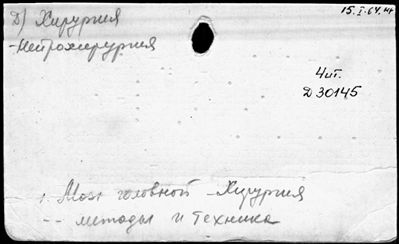 Д) Хирургия
15.I.64.
-Нейрохирургия
Чит.
Д 30145
1. Мозг головной - Хирургия
-- методы и техника